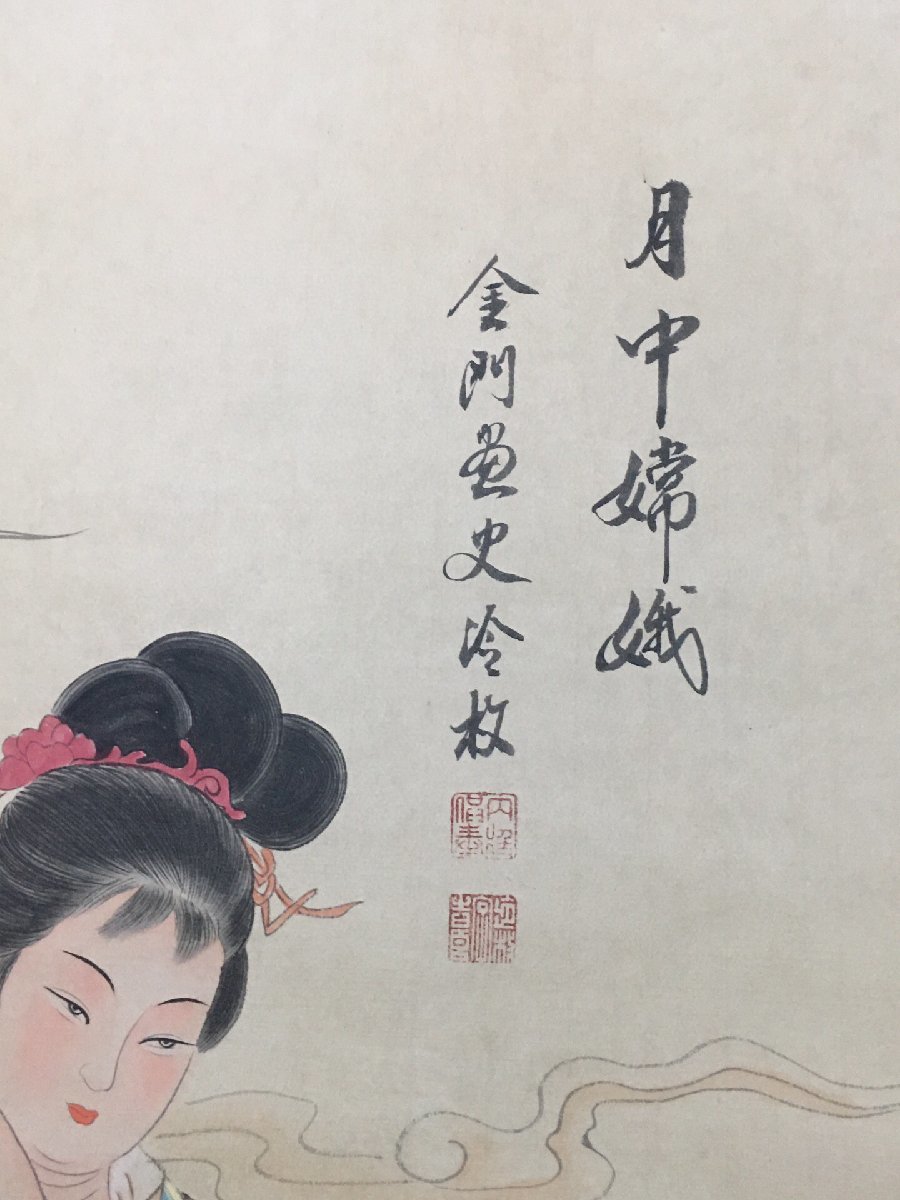 月中嫦娥
金門畫史冷枚